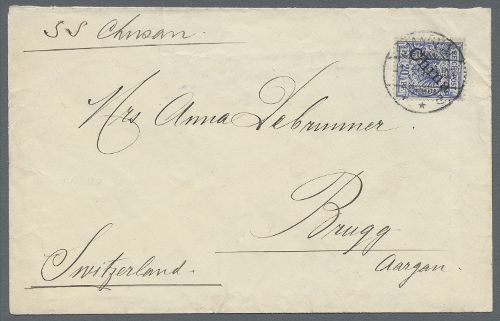 SS Chusan.
China
Mrs Anna Debrunner.
Brugg
Aargau.
Switzerland.